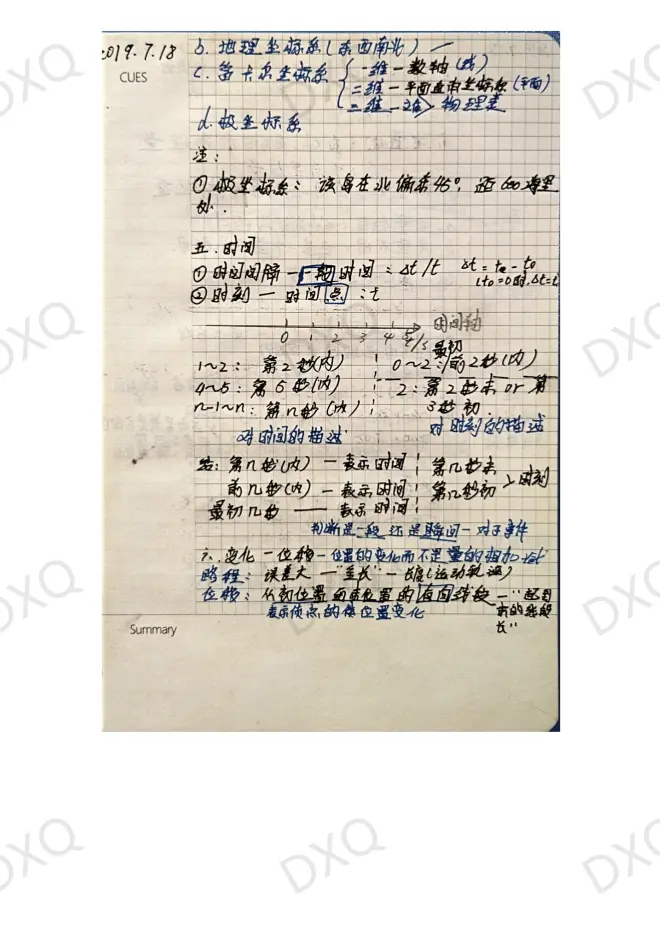 2019.7.18
CUES
b. 地理坐标系(东西南北) —
c. 笛卡尔坐标系 { 一维 — 数轴(线)
二维 — 平面直角坐标系(平面)
三维 — 物理差
d. 极坐标系
注:
① 极坐标系: 该岛在北偏东45°, 距600海里
处.
五. 时间
① 时间间隔 — 一段时间: Δt/t Δt = t - t0
t0=0时,Δt=t
② 时刻 — 时间点: t
0 1 2 3 4 5 t/s 时间轴
1~2: 第2秒(内) 最初 0~2: 前2秒(内)
4~5: 第5秒(内) 2: 第2秒末 or 第
n-1~n: 第n秒(内) 3秒初
对时间的描述 对时刻的描述
结: 第几秒(内) — 表示时间 第几秒末
前几秒(内) — 表示时间 第几秒初 > 时刻
最初几秒 — 表示时间
判断是一段还是瞬间 — 对于事件
六. 变化 — 位移 — 位置的变化而不是量的相加
路程: 误差大 — "全长" — 长度(运动轨迹)
位移: 从初位置向末位置的有向线段 — "起到
表示质点的位置变化
的线段
长"
Summary
DXQ
DXQ
DXQ
DXQ
DXQ
DXQ
DXQ
DXQ
DXQ
DXQ
DXQ
DXQ